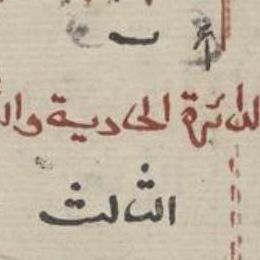 الدائرة الحادية وال
الثالث